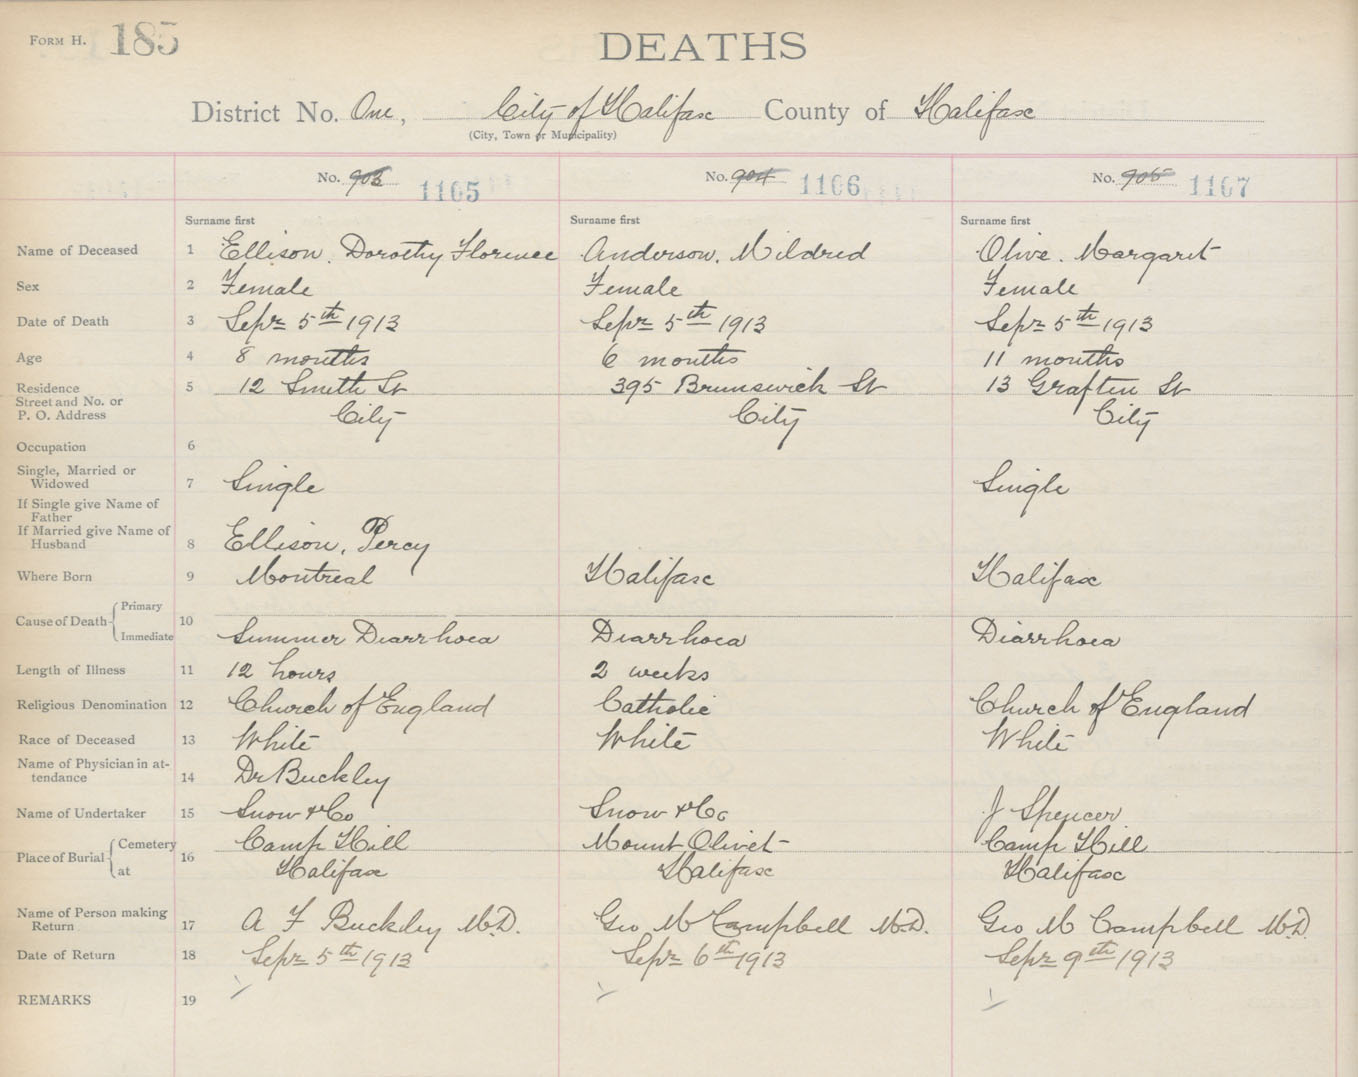 FORM H. 185
DEATHS
District No. One, City of Halifax County of Halifax
(City, Town or Municipality)
No. 903 1105 No. 904 1106 No. 905 1107
Surname first Surname first Surname first
Name of Deceased 1 Ellison, Dorothy Florence Anderson, Mildred Olive. Margaret
Sex 2 Female Female Female
Date of Death 3 Sepr 5th 1913 Sepr 5th 1913 Sepr 5th 1913
Age 4 8 months 6 months 11 months
Residence 5 12 Smith St 395 Brunswick St 13 Graften St
Street and No. or
P. O. Address City City City
Occupation 6
Single, Married or
Widowed 7 Single Single
If Single give Name of
Father
If Married give Name of
Husband 8 Ellison, Percy
Where Born 9 Montreal Halifax Halifax
Cause of Death Primary 10
Immediate Summer Diarrhoea Diarrhoea Diarrhoea
Length of Illness 11 12 hours 2 weeks
Religious Denomination 12 Church of England Catholic Church of England
Race of Deceased 13 White White White
Name of Physician in at-
tendance 14 Dr Buckley
Name of Undertaker 15 Snow & Co Snow & Co J Spencer
Place of Burial Cemetery 16 Camp Hill Mount Olivet Camp Hill
at Halifax Halifax Halifax
Name of Person making
Return 17 A F Buckley M.D. Geo M Campbell M.D. Geo M Campbell M.D.
Date of Return 18 Sepr 5th 1913 Sepr 6th 1913 Sepr 9th 1913
REMARKS 19